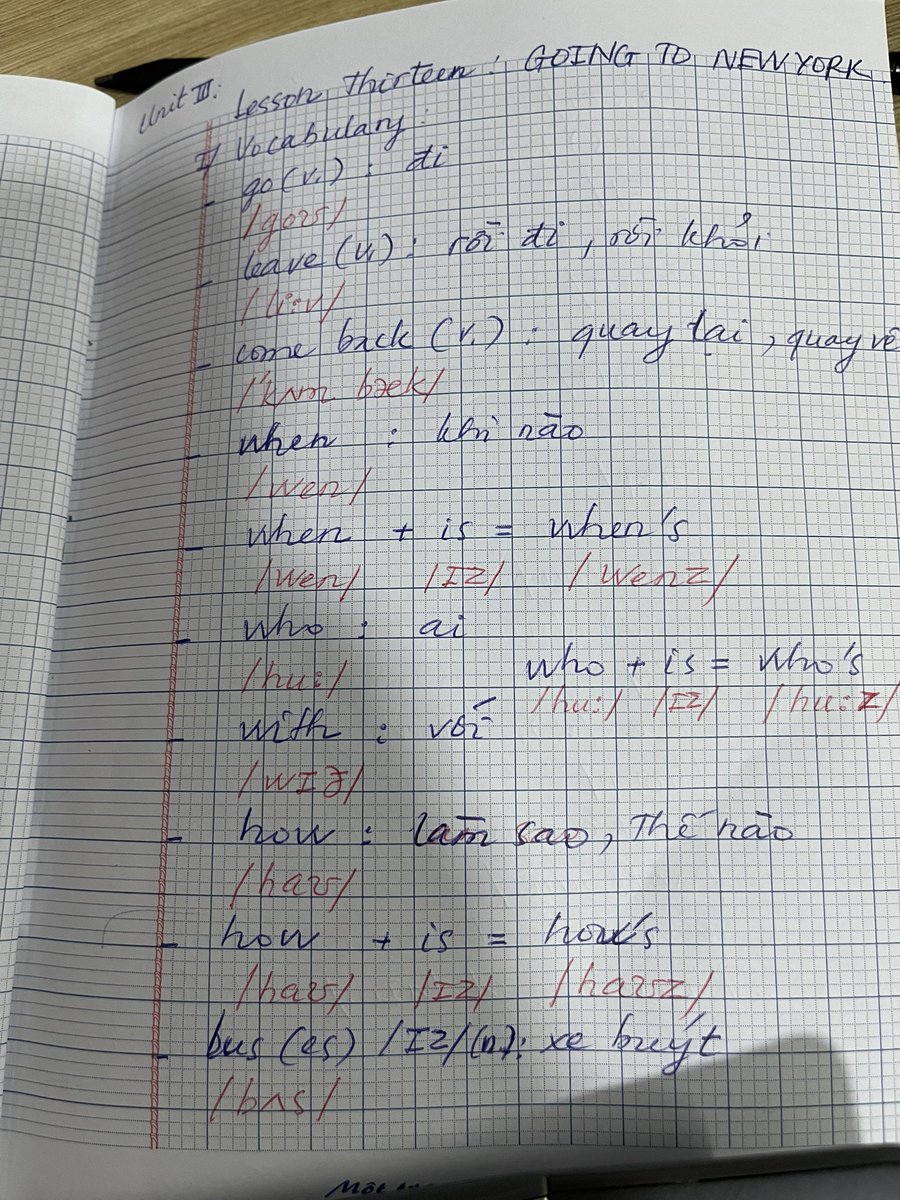 Unit III: Lesson Thirteen: GOING TO NEW YORK
I/ Vocabulary:
- go (v.) : đi
/goʊ/
- leave (v.) : rời đi, rời khỏi
/li:v/
- come back (v.) : quay lại, quay về
/ˈkʌm bæk/
- when : khi nào
/wen/
- when + is = when's
/wen/ /ɪz/ /wenz/
- who : ai
/hu:/
who + is = who's
/hu:/ /ɪz/ /hu:z/
- with : với
/wɪð/
- how : làm sao, thế nào
/haʊ/
- how + is = how's
/haʊ/ /ɪz/ /haʊz/
- bus (es) /ɪz/ (n.): xe buýt
/bʌs/